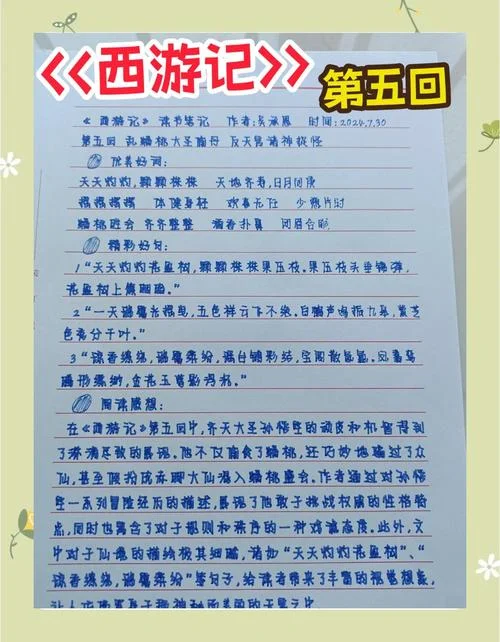 <<西游记>>
第五回
《西游记》读书笔记 作者:吴承恩 时间:2024.7.30
第五回 乱蟠桃大圣偷丹 反天宫诸神捉怪
优美好词:
夭夭灼灼,颗颗株株 天地齐寿,日月同庚
摇摇摆摆 体健身轻 欢喜无任 少憩片时
蟠桃胜会 齐齐整整 酒香扑鼻 闭眉合眼
精彩好句:
1 “夭夭灼灼花盈树,颗颗株株果压枝。果压枝头垂锦弹,
花盈树上簇胭脂。”
2 “一天瑞霭光摇曳,五色祥云飞不绝。白鹤声鸣振九皋,紫芝
色秀分千叶。”
3 “琼香缭绕,瑞霭缤纷,瑶台铺彩结,宝阁散氤氲。凤翥鸾
腾形缥缈,金花玉萼影浮沉。”
阅读感想:
在《西游记》第五回中,齐天大圣孙悟空的顽皮和机智得到
了淋漓尽致的展现。他不仅偷食了蟠桃,还巧妙地骗过了众
仙,甚至假扮成赤脚大仙混入蟠桃盛会。作者通过对孙悟
空一系列冒险经历的描述,展现了他敢于挑战权威的性格特
点,同时也寓含了对于规则和秩序的一种戏谑态度。此外,文
中对于仙境的描绘极其细腻,诸如“夭夭灼灼花盈树”、
“琼香缭绕,瑞霭缤纷”等句子,给读者带来了丰富的视觉想象,
让人仿佛置身于那神秘而美丽的天宫之中。